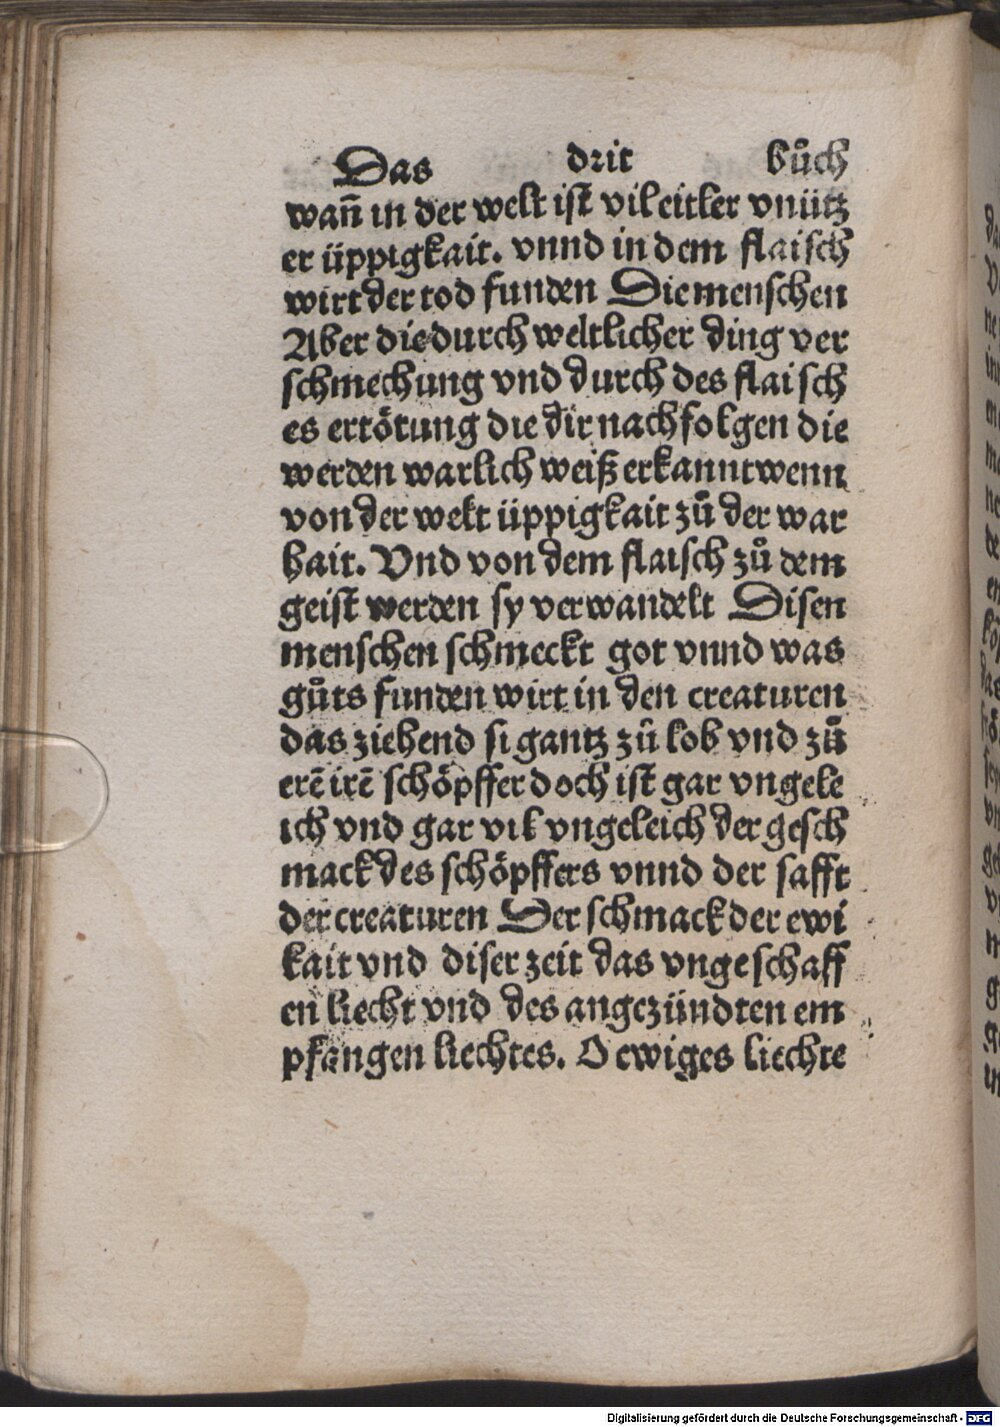 Das drit bůch
wañ in der welt ist vil eitler vnütz
er üppigkait. vnnd in dem flaisch
wirt der tod funden Die menschen
Aber die durch weltlicher ding ver
schmechung vnd durch des flaisch
es ertötung die dir nachfolgen die
werden warlich weiß erkannt wenn
von der welt üppigkait zů der war
hait. Vnd von dem flaisch zů dem
geist werden sy verwandelt Disen
menschen schmeckt got vnnd was
gůts funden wirt in den creaturen
das ziehend si gantz zů lob vnd zů
erē irē schöpffer doch ist gar vngele
ich vnd gar vil vngeleich der gesch
mack des schöpffers vnnd der safft
der creaturen Der schmack der ewi
kait vnd diser zeit das vngeschaff
en liecht vnd des angezündten em
pfangen liechtes. O ewiges liechte
Digitalisierung gefördert durch die Deutsche Forschungsgemeinschaft - DFG